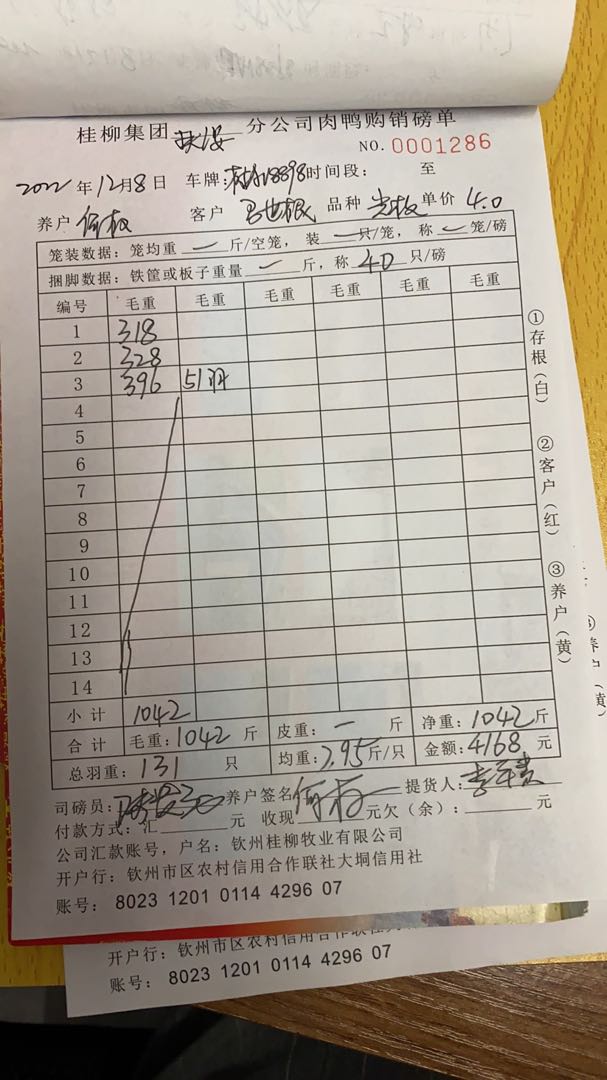 桂柳集团 分公司肉鸭购销磅单
NO. 0001286
2022年12月8日 车牌: 8898 时间段: 至
养户 何权 客户 品种 光板 单价 4.0
笼装数据:笼均重 一 斤/空笼,装 一 只/笼,称 一 笼/磅
捆脚数据:铁筐或板子重量 一 斤,称 40 只/磅
编号 毛重 毛重 毛重 毛重 毛重 毛重
1 318
2 328
3 396 51羽
4
5
6
7
8
9
10
11
12
13
14
小计 1042
合计 毛重:1042斤 皮重:一 斤 净重:1042斤
总羽重:131 只 均重:7.95斤/只 金额:4168 元
司磅员: 养户签名 何权 提货人:
付款方式:汇 元 收现 元欠(余): 元
公司汇款账号,户名:钦州桂柳牧业有限公司
开户行:钦州市区农村信用合作联社大垌信用社
账号: 8023 1201 0114 4296 07
①存根(白)
②客户(红)
③养户(黄)
开户行:钦州市区农村信用合作联社
账号: 8023 1201 0114 4296 07
养户(黄)